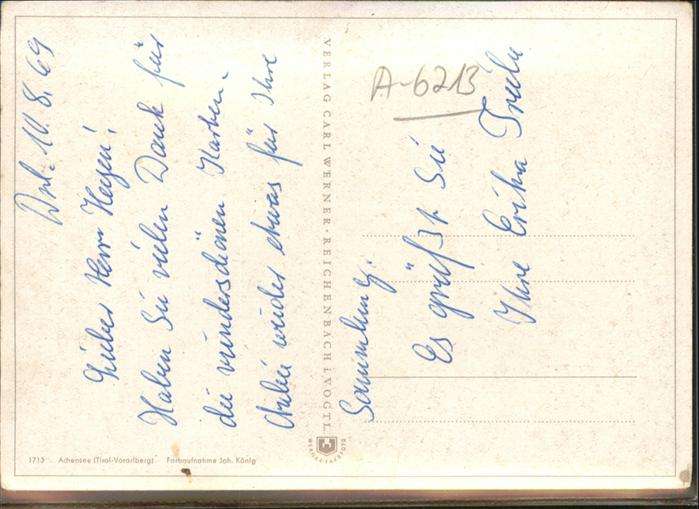 10.8.69
Lieber Herr Heyen!
Haben Sie vielen Dank für
die wunderschönen Karten.
Anbei wieder etwas für Ihre
Sammlung.
Es grüßt Sie
Ihre Erika
A-6213
VERLAG CARL WERNER · REICHENBACH i. VOGTL.
1713 Achensee (Tirol-Vorarlberg) Farbaufnahme Joh. König